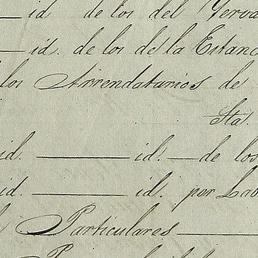 — id de los del Yerva
— id. de los de la Estanc
los Arrendatarios de
Sta.
id. — id. — de los
id. — id. por
Particulares —